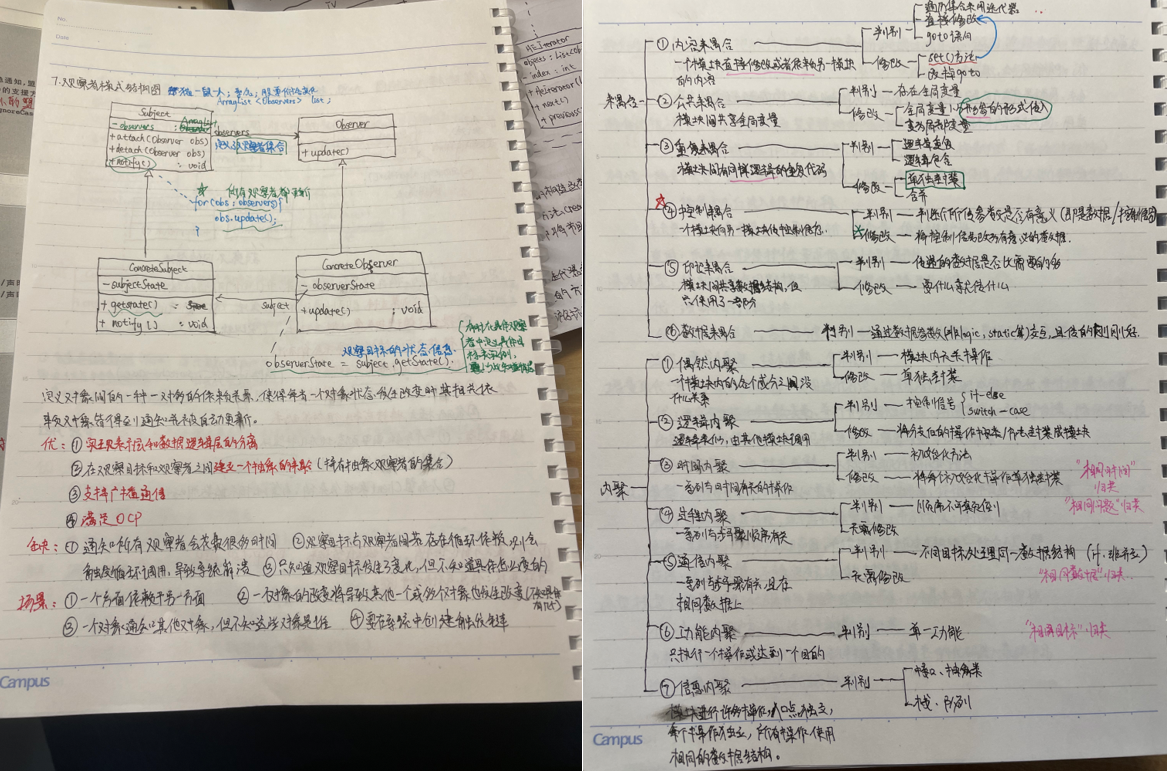 7.观察者模式结构图
ArrayList <Observers> list;
Subject
- observers : ArrayList
+ attach(Observer obs)
+ detach(Observer obs)
+ notify() : void
observers
定义观察者集合
Observer
+ update()
所有观察者都更新
for(obs: observers){
obs.update();
}
ConcreteSubject
- subjectState
+ getstate() :
+ notify() : void
subject
ConcreteObserver
- observerState
+ update() : void
观察目标的状态信息
observerState = subject.getState();
定义对象间的一种一对多的依赖关系，使得每当一个对象状态发生改变时其相关依
赖对象都得到通知并被自动更新。
优：① 实现表示层和数据逻辑层的分离
② 在观察目标和观察者之间建立一个抽象的耦合（持有抽象观察者的集合）
③ 支持广播通信
④ 满足OCP
缺：① 通知所有观察者会花费很多时间 ② 观察目标与观察者间若存在循环依赖，则会
触发循环调用，导致系统崩溃 ③ 只知道观察目标发生了变化，但不知道具体怎么变的
场景：① 一个方面依赖于另一方面 ② 一个对象的改变将导致其他一个或多个对象也发生改变
③ 一个对象通知其他对象，但不知这些对象是谁 ④ 需在系统中创建触发链
Campus
HeIterator
objects: List<Obj
- index : int
+ HeIterator(
+ next()
+ previous
耦合
遍历集合采用迭代器
① 内容耦合
判别
直接修改
goto语句
一个模块直接修改或者依赖另一模块
的内容
修改
set()方法
改掉goto
② 公共耦合
判别
存在全局变量
模块间共享全局变量
修改
全局变量以参数的形式传入
变为局部变量
③ 重复耦合
判别
逻辑重复
逻辑包含
模块间有同样逻辑的重复代码
修改
单独封装
合并
④ 控制耦合
判别 — 判断所传参数是否有意义（即是数据/控制信号）
一个模块向另一模块传控制信息.
修改 — 将控制信息改为有意义的数据.
⑤ 印记耦合
判别 — 传递的数据是否比需要的多
模块间共享数据结构，但
只使用了一部分
修改 — 要什么就传什么
⑥ 数据耦合
内聚
① 偶然内聚
判别 — 模块内无关操作
一个模块内的各个成分之间没
什么关系
修改 — 单独封装
② 逻辑内聚
判别 — 控制信号
if-else
switch-case
逻辑类似，由其他模块调用
③ 时间内聚
判别 — 初始化方法
一系列与时间有关的操作
修改 — 将每个初始化操作单独封装
"相同时间"
归类
④ 过程内聚
判别
一系列与步骤顺序有关
无需修改
"相同问题"归类
⑤ 通信内聚
判别 — 不同目标处理同一数据结构
一系列与步骤有关，且在
相同数据上
无需修改
"相同数据"归类
⑥ 功能内聚
判别 — 单一功能
只执行一个操作或达到一个目的
"相同目标"归类
⑦ 信息内聚
判别
接口、抽象类
栈、队列
模块进行许多操作，入口点独立，
每个操作独立，所有操作使用
相同的数据结构。
Campus